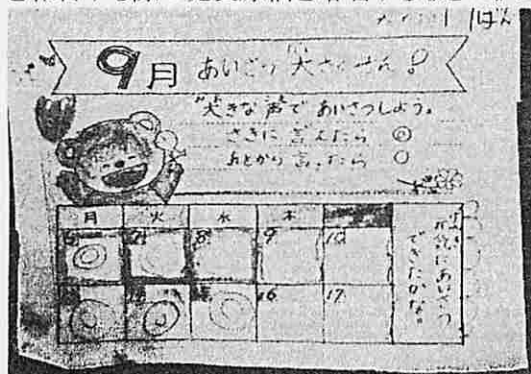 1ばん
9月 あいさつ大さくせん!
大きな声であいさつしよう。
さきに言えたら ◎
あとから言ったら ○
月 火 水 木
6 7 8 9 10
16 17
にあいさつ
できたかな。